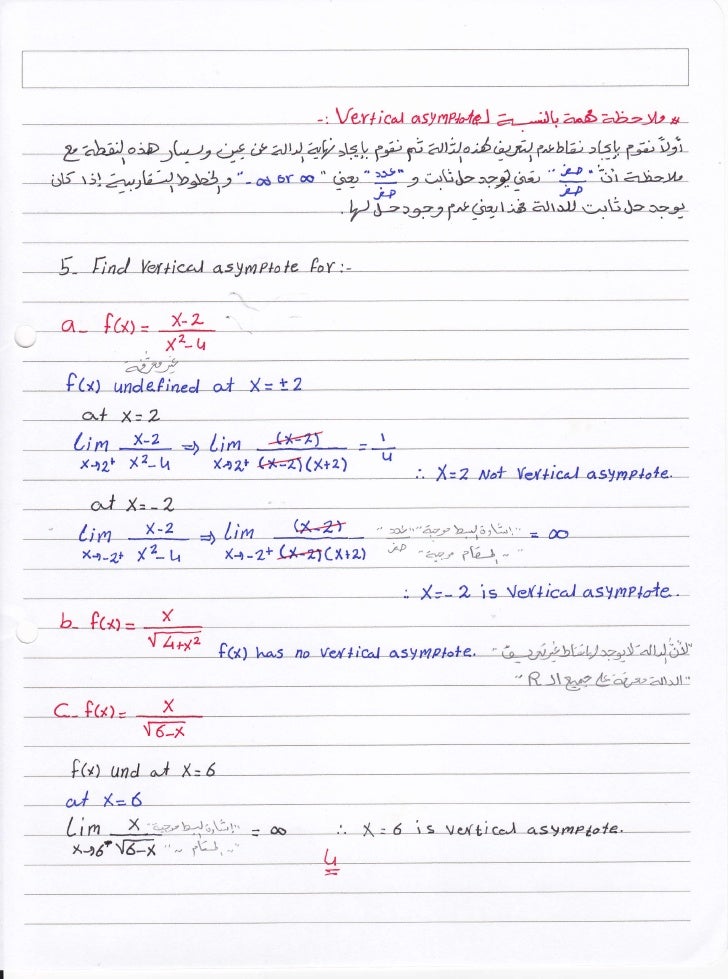 * ملاحظة همة بالنسبة لـ Vertical asymptote :-
أولاً نقوم بإيجاد نقاط عدم التعريف لهذه الدالة ثم نقوم بإيجاد نهاية الدالة عن يمين ويسار هذه النقطة مع
ملاحظة أنّ "صفر/صفر" يعني يوجد حل ثابت و "عدد/صفر" يعني "-∞ or ∞" والخطوط التقاربية إذا كان
يوجد حل ثابت للدالة فهذا يعني عدم وجود حل لها.
5- Find vertical asymptote for:-
a- f(x) = (x-2)/(x²-4)
غير معرفة
f(x) undefined at x = ±2
at x = 2
lim x→2⁺ (x-2)/(x²-4) ⇒ lim x→2⁺ (x-2)/((x-2)(x+2)) = 1/4
∴ x=2 Not vertical asymptote.
at x = -2
lim x→-2⁺ (x-2)/(x²-4) ⇒ lim x→-2⁺ (x-2)/((x-2)(x+2)) "عدد/صفر" "إشارة البسط موجبة" "~ المقام موجبة" = ∞
∴ x = -2 is vertical asymptote.
b- f(x) = x/√(4+x²)
f(x) has no vertical asymptote. "لأنّ الدالة لا يوجد لها نقاط غير تعريف
الدالة معرفة على جميع الـ R"
C- f(x) = x/√(6-x)
f(x) und at x = 6
at x = 6
lim x→6⁻ x/√(6-x) "إشارة البسط موجبة" "~ المقام ~" = ∞ ∴ x = 6 is vertical asymptote.
4